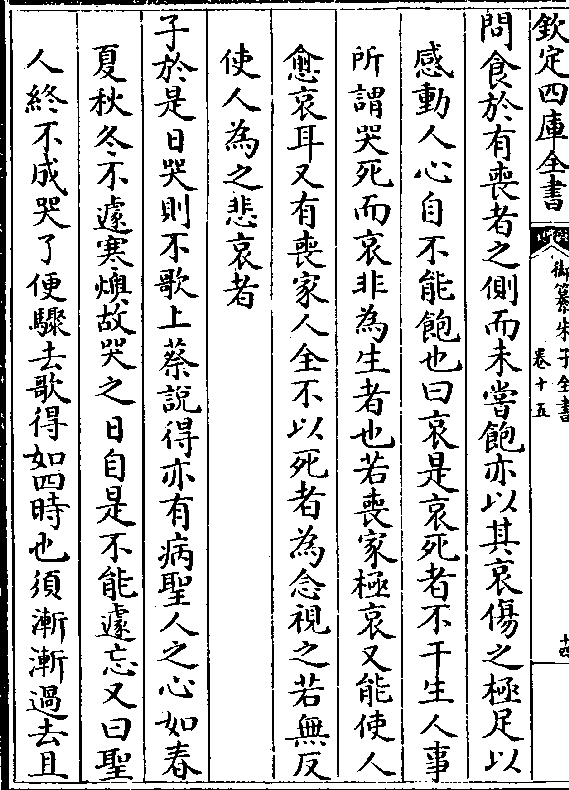 欽定四庫全書
御纂朱子全書
卷十五
十四
問食於有喪者之側而未嘗飽亦以其哀傷之極足以
感動人心自不能飽也曰哀是哀死者不干生人事
所謂哭死而哀非為生者也若喪家極哀又能使人
愈哀耳又有喪家人全不以死者為念視之若無反
使人為之悲哀者
子於是日哭則不歌上蔡說得亦有病聖人之心如春
夏秋冬不遽寒燠故哭之日自是不能遽忘又曰聖
人終不成哭了便驟去歌得如四時也須漸漸過去且